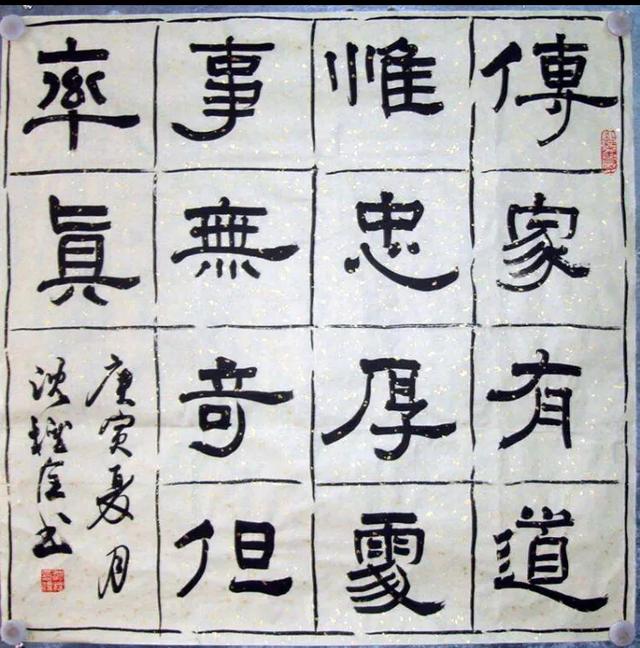 傳家有道
惟忠厚處
事無奇但
率眞
庚寅夏月
沈 书